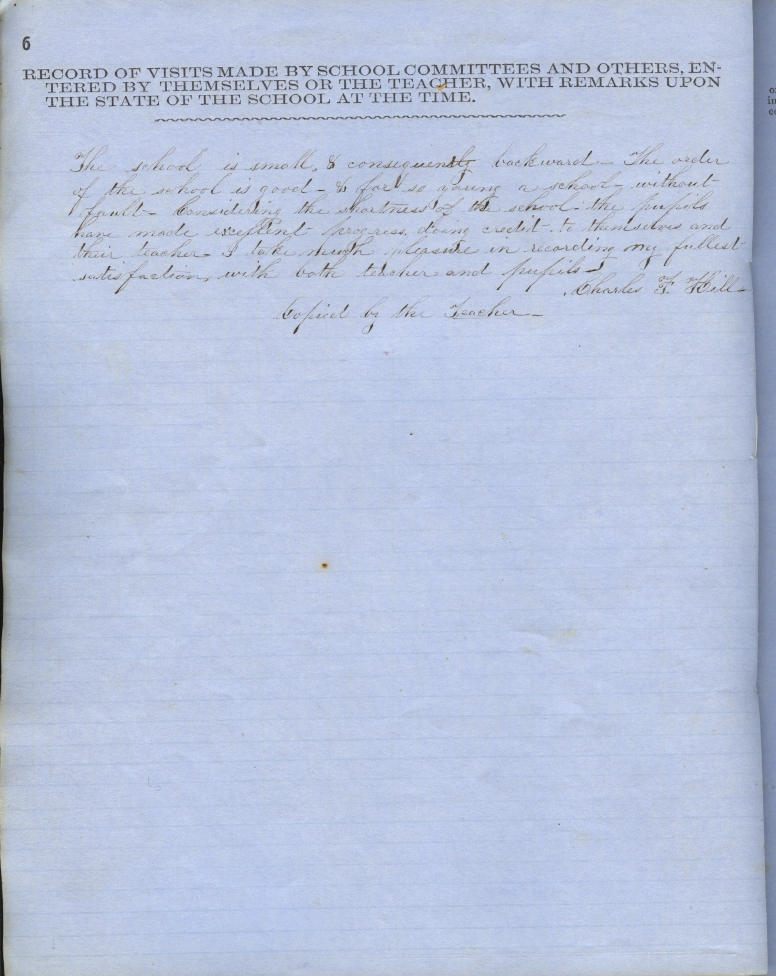 6
RECORD OF VISITS MADE BY SCHOOL COMMITTEES AND OTHERS, EN-
TERED BY THEMSELVES OR THE TEACHER, WITH REMARKS UPON
THE STATE OF THE SCHOOL AT THE TIME.
The school is small, & consequently backward – The order
of the school is good – & for so young a school – without
fault – Considering the shortness of the school – the pupils
have made excellent progress, doing credit to themselves and
their teacher – I take much pleasure in recording my fullest
satisfaction, with both teacher and pupils –
Charles F. Hill –
Copied by the Teacher –